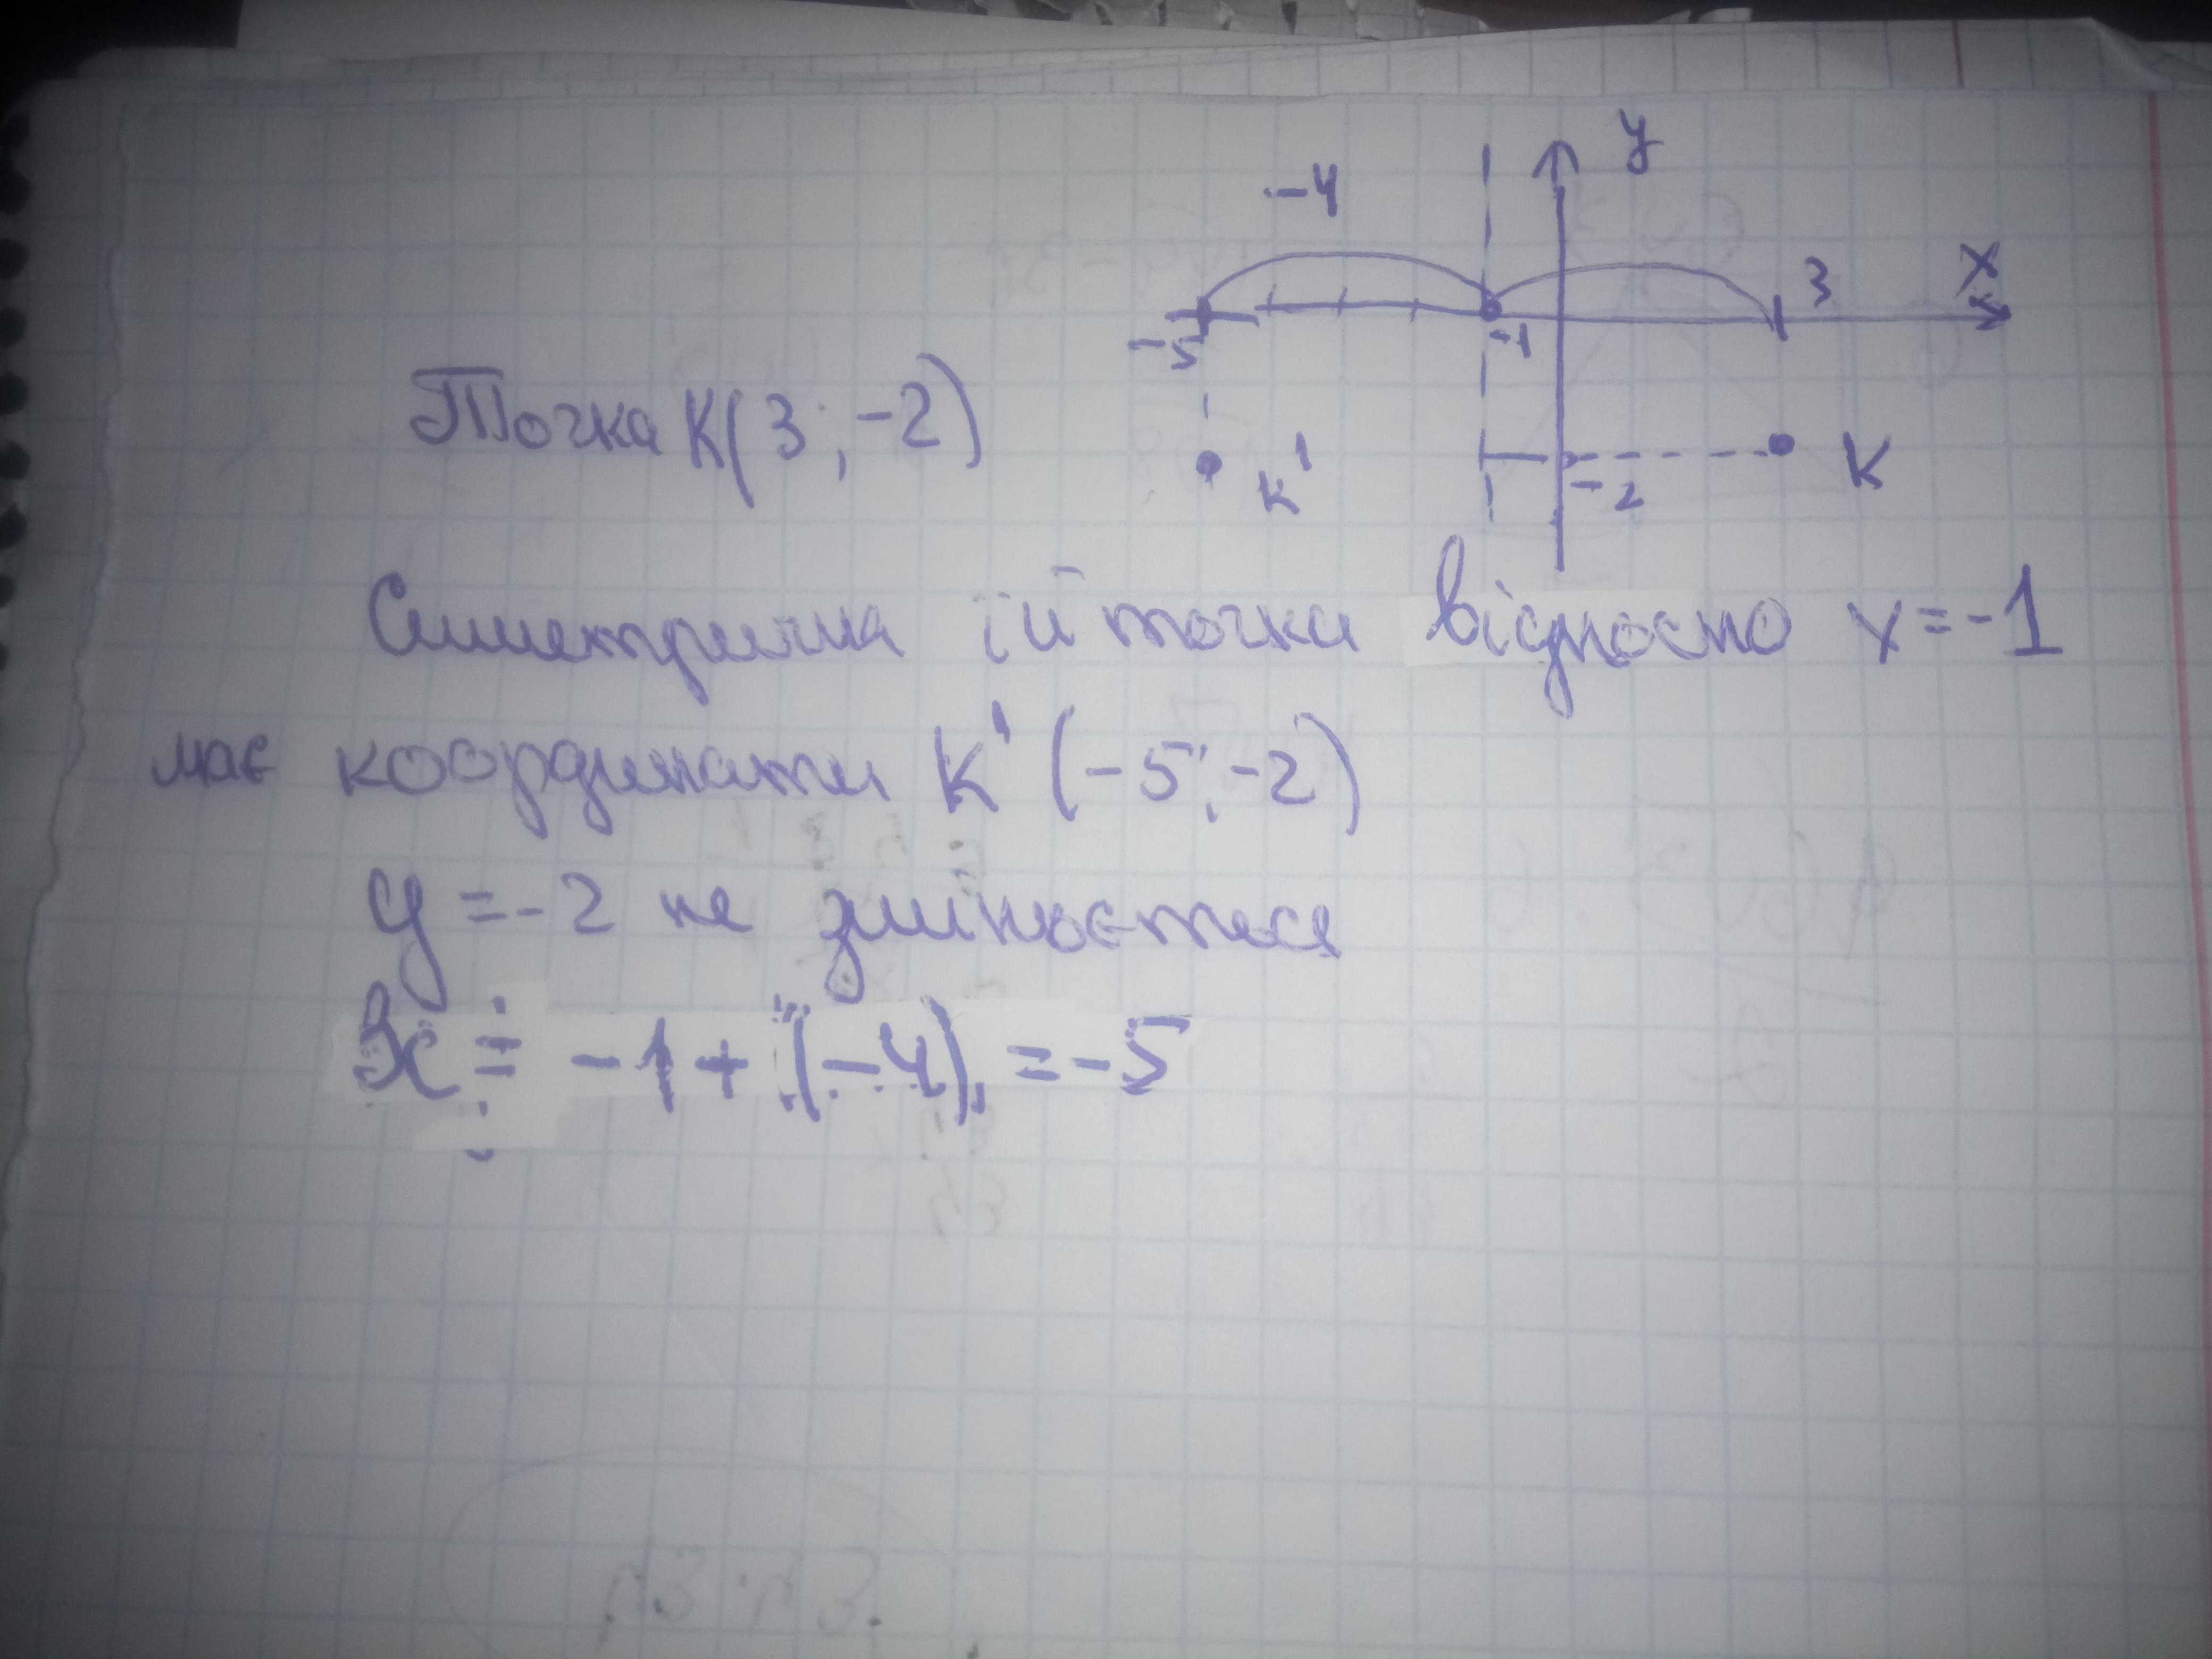 y
-4
x
3
-5
-1
Точка K(3; -2)
K'
-2
K
Симетрична їй точка відносно x=-1
має координати K' (-5; -2)
y = -2 не змінюється
x = -1 + (-4) = -5